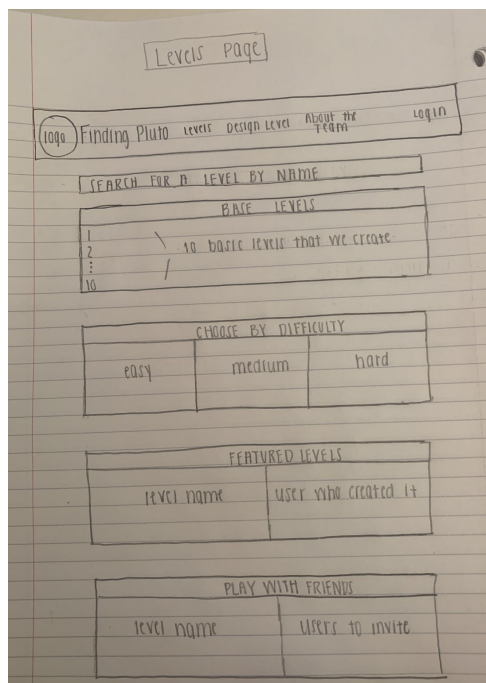 Levels Page
logo Finding Pluto Levels Design Level About the Team Login
SEARCH FOR A LEVEL BY NAME
BASE LEVELS
1
2
⋮
10
10 basic levels that we create
CHOOSE BY DIFFICULTY
easy medium hard
FEATURED LEVELS
level name user who created it
PLAY WITH FRIENDS
level name users to invite